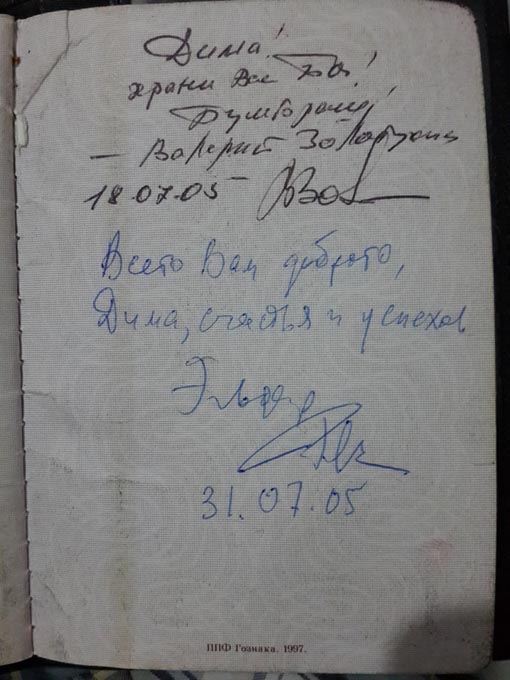 Дима!
храни Вас Бог!
Бумбараш!
— Валерий Золотухин
18.07.05
Всего Вам доброго,
Дима, счастья и успехов
Эльдар
31.07.05
ППФ Гознака. 1997.